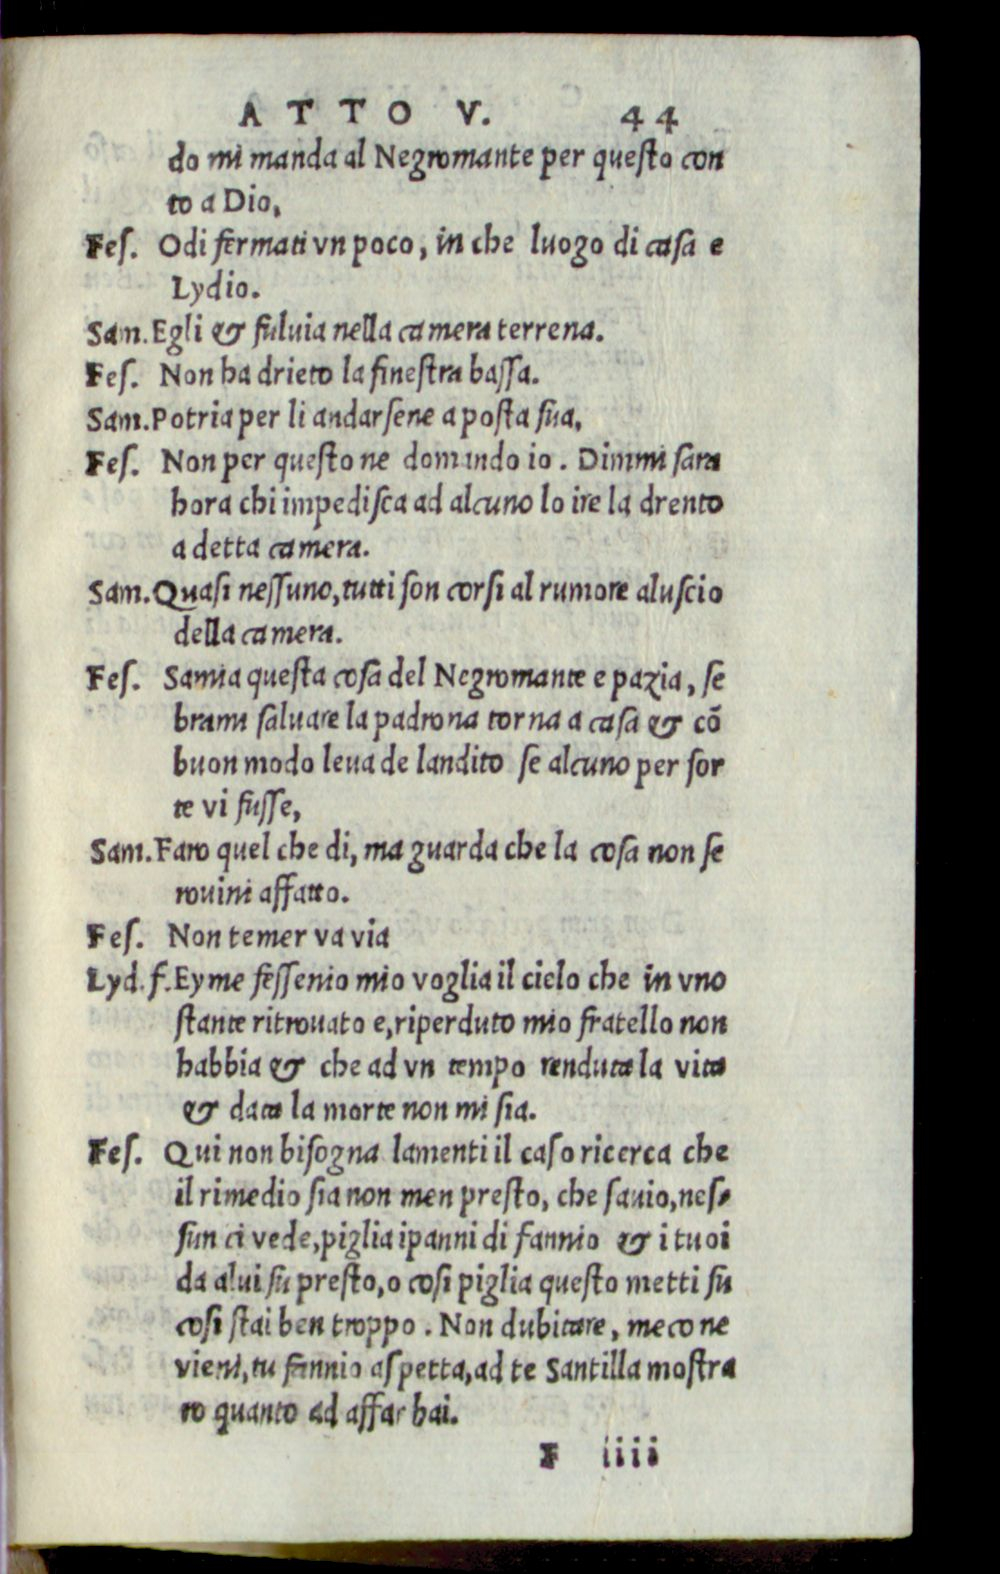 ATTO V. 44
do mi manda al Negromante per queſto con
to a Dio,
Feſ. Odi fermati vn poco, in che luogo di caſa e
Lydio.
Sam. Egli & fuluia nella camera terrena.
Feſ. Non ha drieto la fineſtra baſſa.
Sam. Potria per li andarſene a poſta ſua,
Feſ. Non per queſto ne domando io. Dimmi ſara
hora chi impediſca ad alcuno lo ire la drento
a detta camera.
Sam. Quaſi neſſuno, tutti ſon corſi al rumore aluſcio
della camera.
Feſ. Samia queſta coſa del Negromante e pazia, ſe
brami ſaluare la padrona torna a caſa & cõ
buon modo leua de landito ſe alcuno per ſor
te vi fuſſe,
Sam. Faro quel che di, ma guarda che la coſa non ſe
rouini affatto.
Feſ. Non temer va via
Lyd. f. Eyme feſſenio mio voglia il cielo che in vno
ſtante ritrouato e, riperduto mio fratello non
habbia & che ad vn tempo renduta la vita
& data la morte non mi ſia.
Feſ. Qui non biſogna lamenti il caſo ricerca che
il rimedio ſia non men preſto, che ſauio, neſ-
ſun ci vede, piglia i panni di fannio & i tuoi
da a lui ſu preſto, o coſi piglia queſto metti ſu
coſi ſtai ben troppo. Non dubitare, meco ne
vieni, tu fannio aſpetta, ad te Santilla moſtra
ro quanto ad affar hai.
F iiii